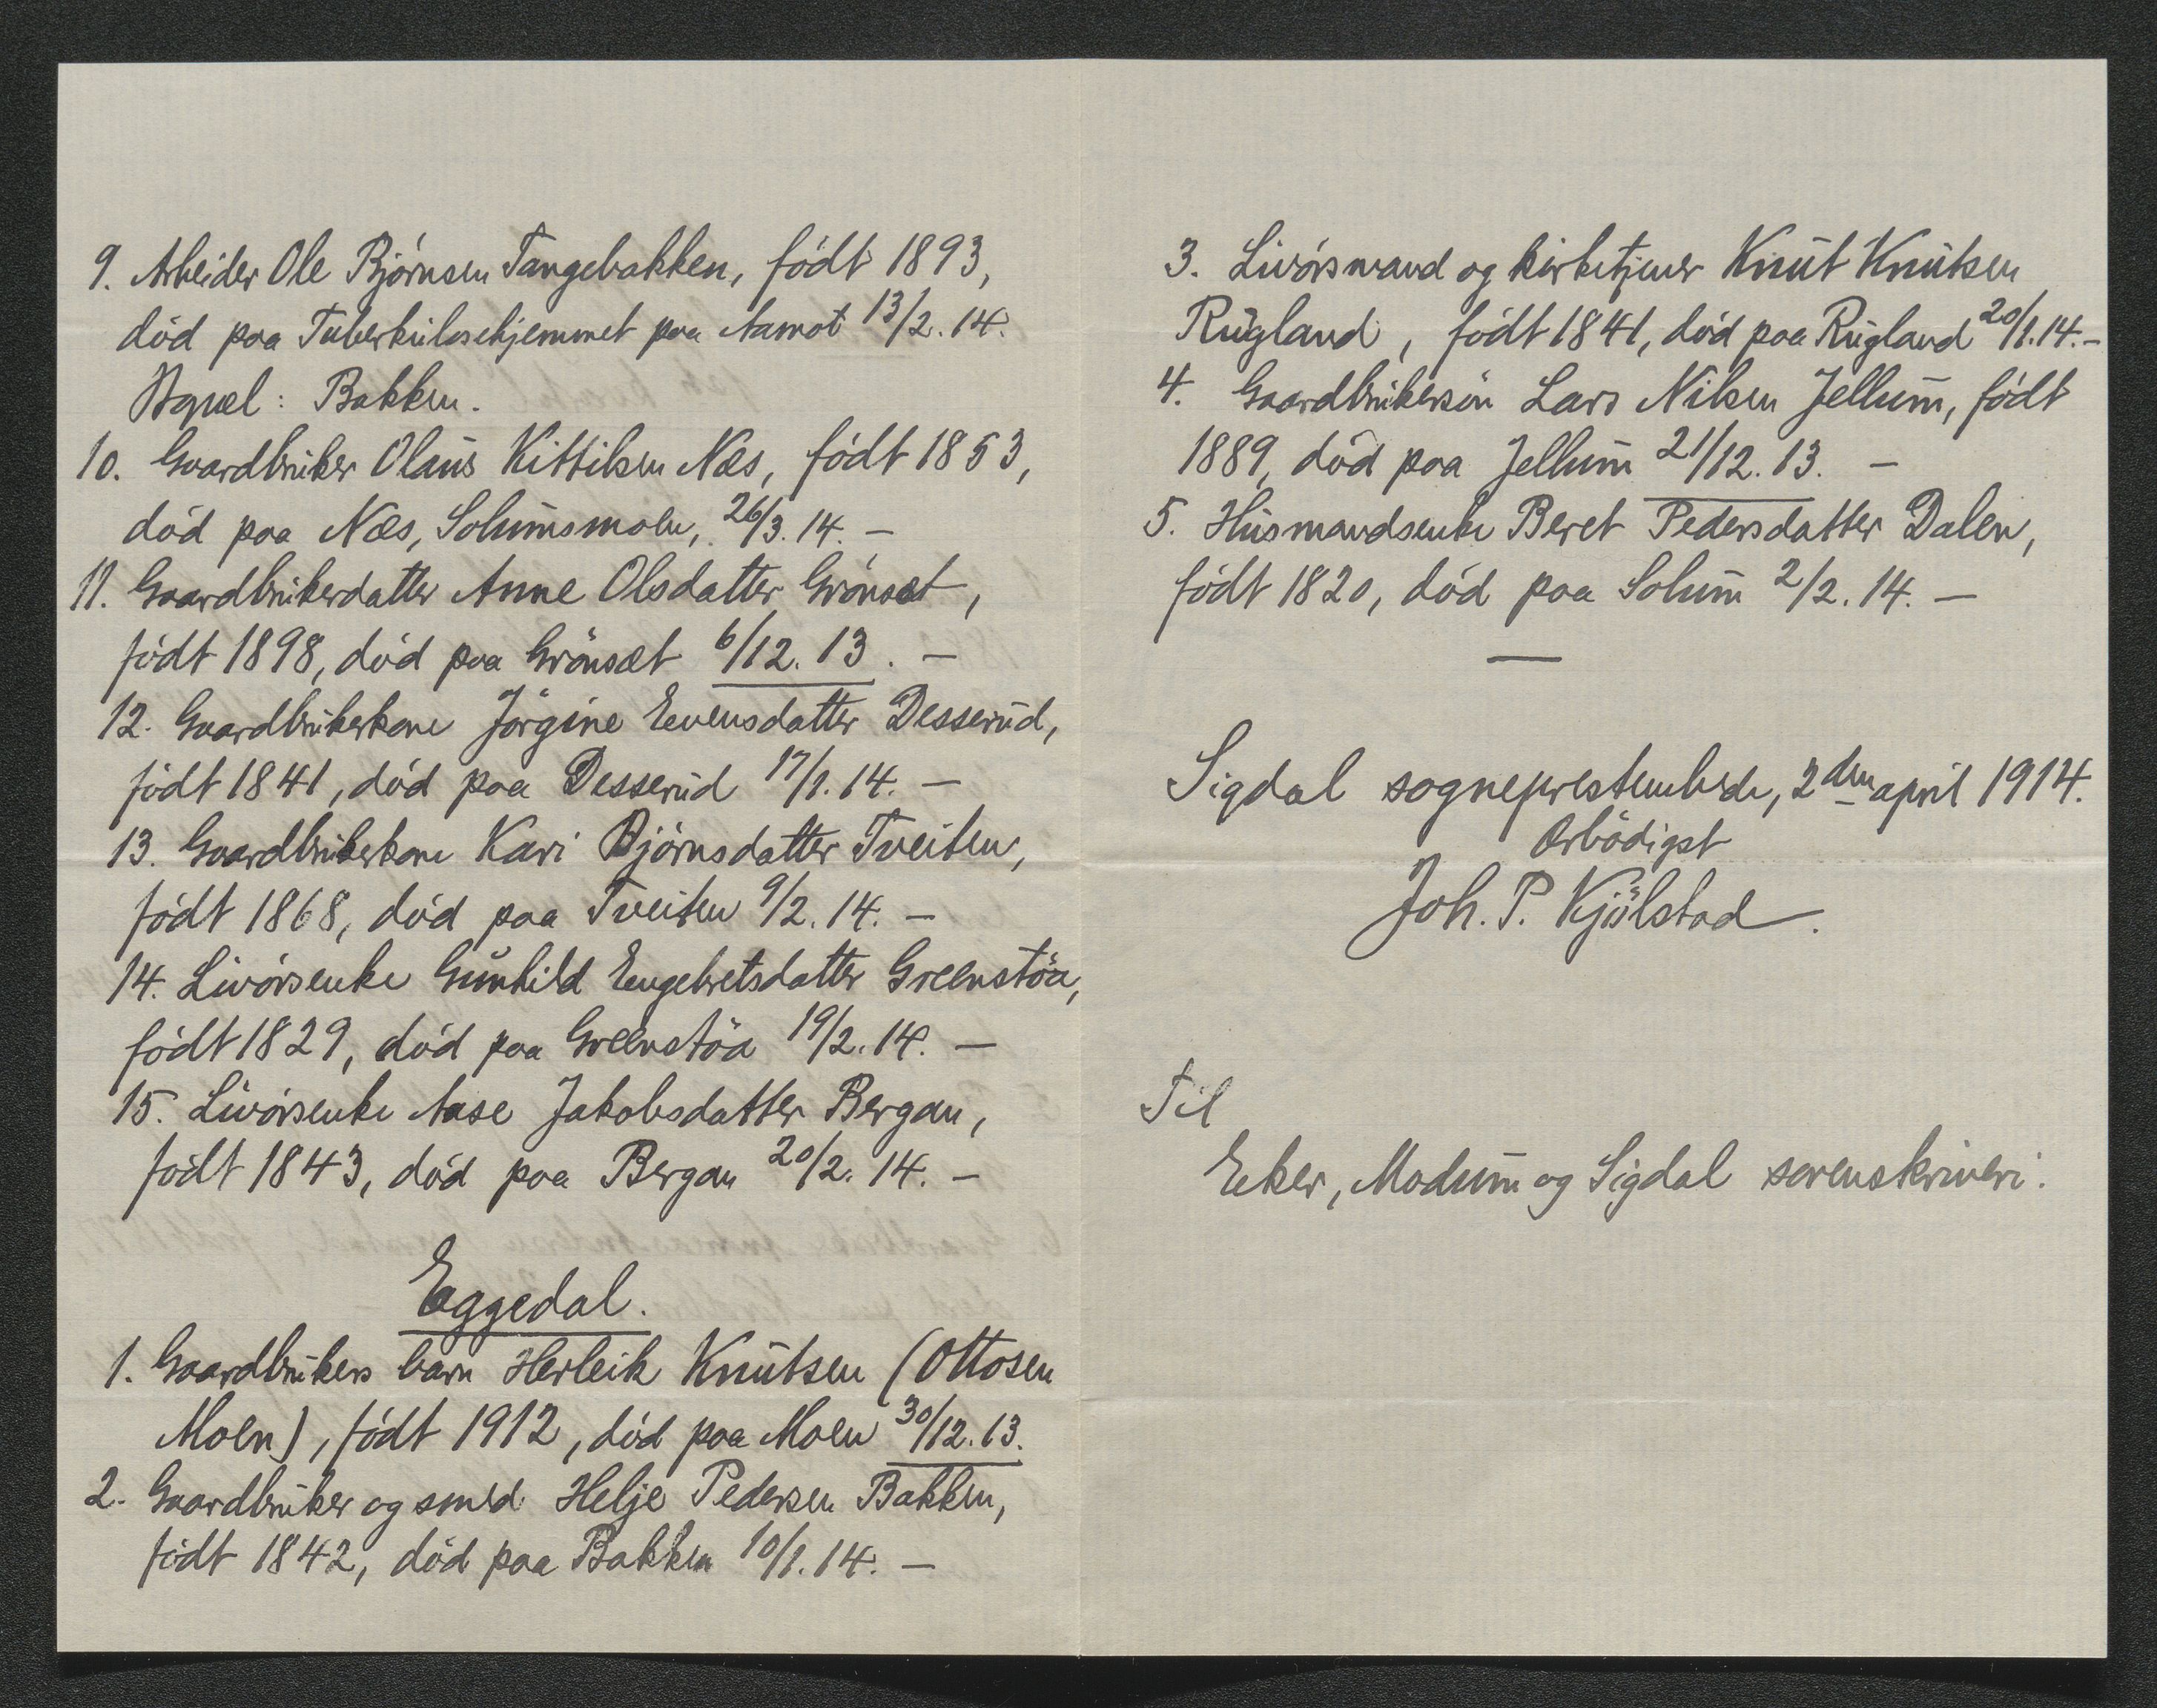 9. Arbeider Ole Bjørnsen Tangebakken, født 1893,
død paa Tuberkulosehjemmet paa Aamot 13/2. 14.
Bopæl: Bakken.
10. Gaardbruker Olaus Kittilsen Næs, født 1853,
død paa Næs, Solumsmoen, 26/3. 14. —
11. Gaardbrukerdatter Anne Olsdatter Grønsæt,
født 1898, død paa Grønsæt 6/12. 13. —
12. Gaardbrukerkone Jørgine Evensdatter Desserud,
født 1841, død paa Desserud 17/1. 14. —
13. Gaardbrukerkone Kari Bjørnsdatter Tveiten,
født 1868, død paa Tveiten 9/2. 14. —
14. Livørsenke Gunhild Engebretsdatter Greenstøa,
født 1829, død paa Greenstøa 19/2. 14. —
15. Livørsenke Aase Jakobsdatter Bergan,
født 1843, død paa Bergan 20/2. 14. —
Eggedal.
1. Gaardbrukers barn Herleik Knutsen (Ottosen
Moen), født 1912, død paa Moen 30/12. 13.
2. Gaardbruker og smed Helje Pedersen Bakken,
født 1842, død paa Bakken 10/1. 14. —
3. Livørsmand og kirketjener Knut Knutsen
Rugland, født 1841, død paa Rugland 20/1. 14. —
4. Gaardbrukersøn Lars Nilsen Jellum, født
1889, død paa Jellum 21/12. 13. —
5. Husmandsenke Beret Pedersdatter Dalen,
født 1820, død paa Solum 2/2. 14. —
Sigdal sogneprestembede, 2den april 1914.
Ærbødigst
Joh. P. Kjølstad.
Til
Eker, Modum og Sigdal sorenskriveri.